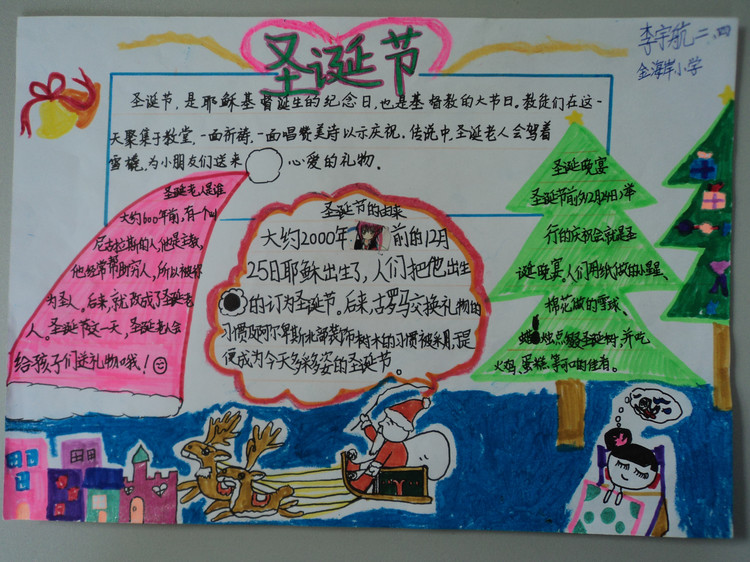 圣诞节
李宇航 二.四
金海岸小学
圣诞节，是耶稣基督诞生的纪念日，也是基督教的大节日。教徒们在这一
天聚集于教堂，一面祈祷，一面唱赞美诗以示庆祝。传说中，圣诞老人会驾着
雪橇，为小朋友们送来 心爱的礼物。
圣诞老人是谁
大约600年前，有一个叫
尼古拉斯的人，他是主教，
他经常帮助穷人，所以被称
为圣人。后来，就改成了圣诞老
人。圣诞节这一天，圣诞老人会
给孩子们送礼物哦！
圣诞节的由来
大约2000年 前的12月
25日耶稣出生了，人们把他出生
的 订为圣诞节。后来，古罗马交换礼物的
习惯及阿尔卑斯北部装饰树木的习惯被利用，提
便成为今天多彩多姿的圣诞节。
圣诞晚宴
圣诞节前夕12月24日，举
行的庆祝会就是圣
诞晚宴。人们用纸做的小星星、
棉花做的雪球、
蜡 烛点缀圣诞树，并吃
火鸡，蛋糕，等可口的佳肴。